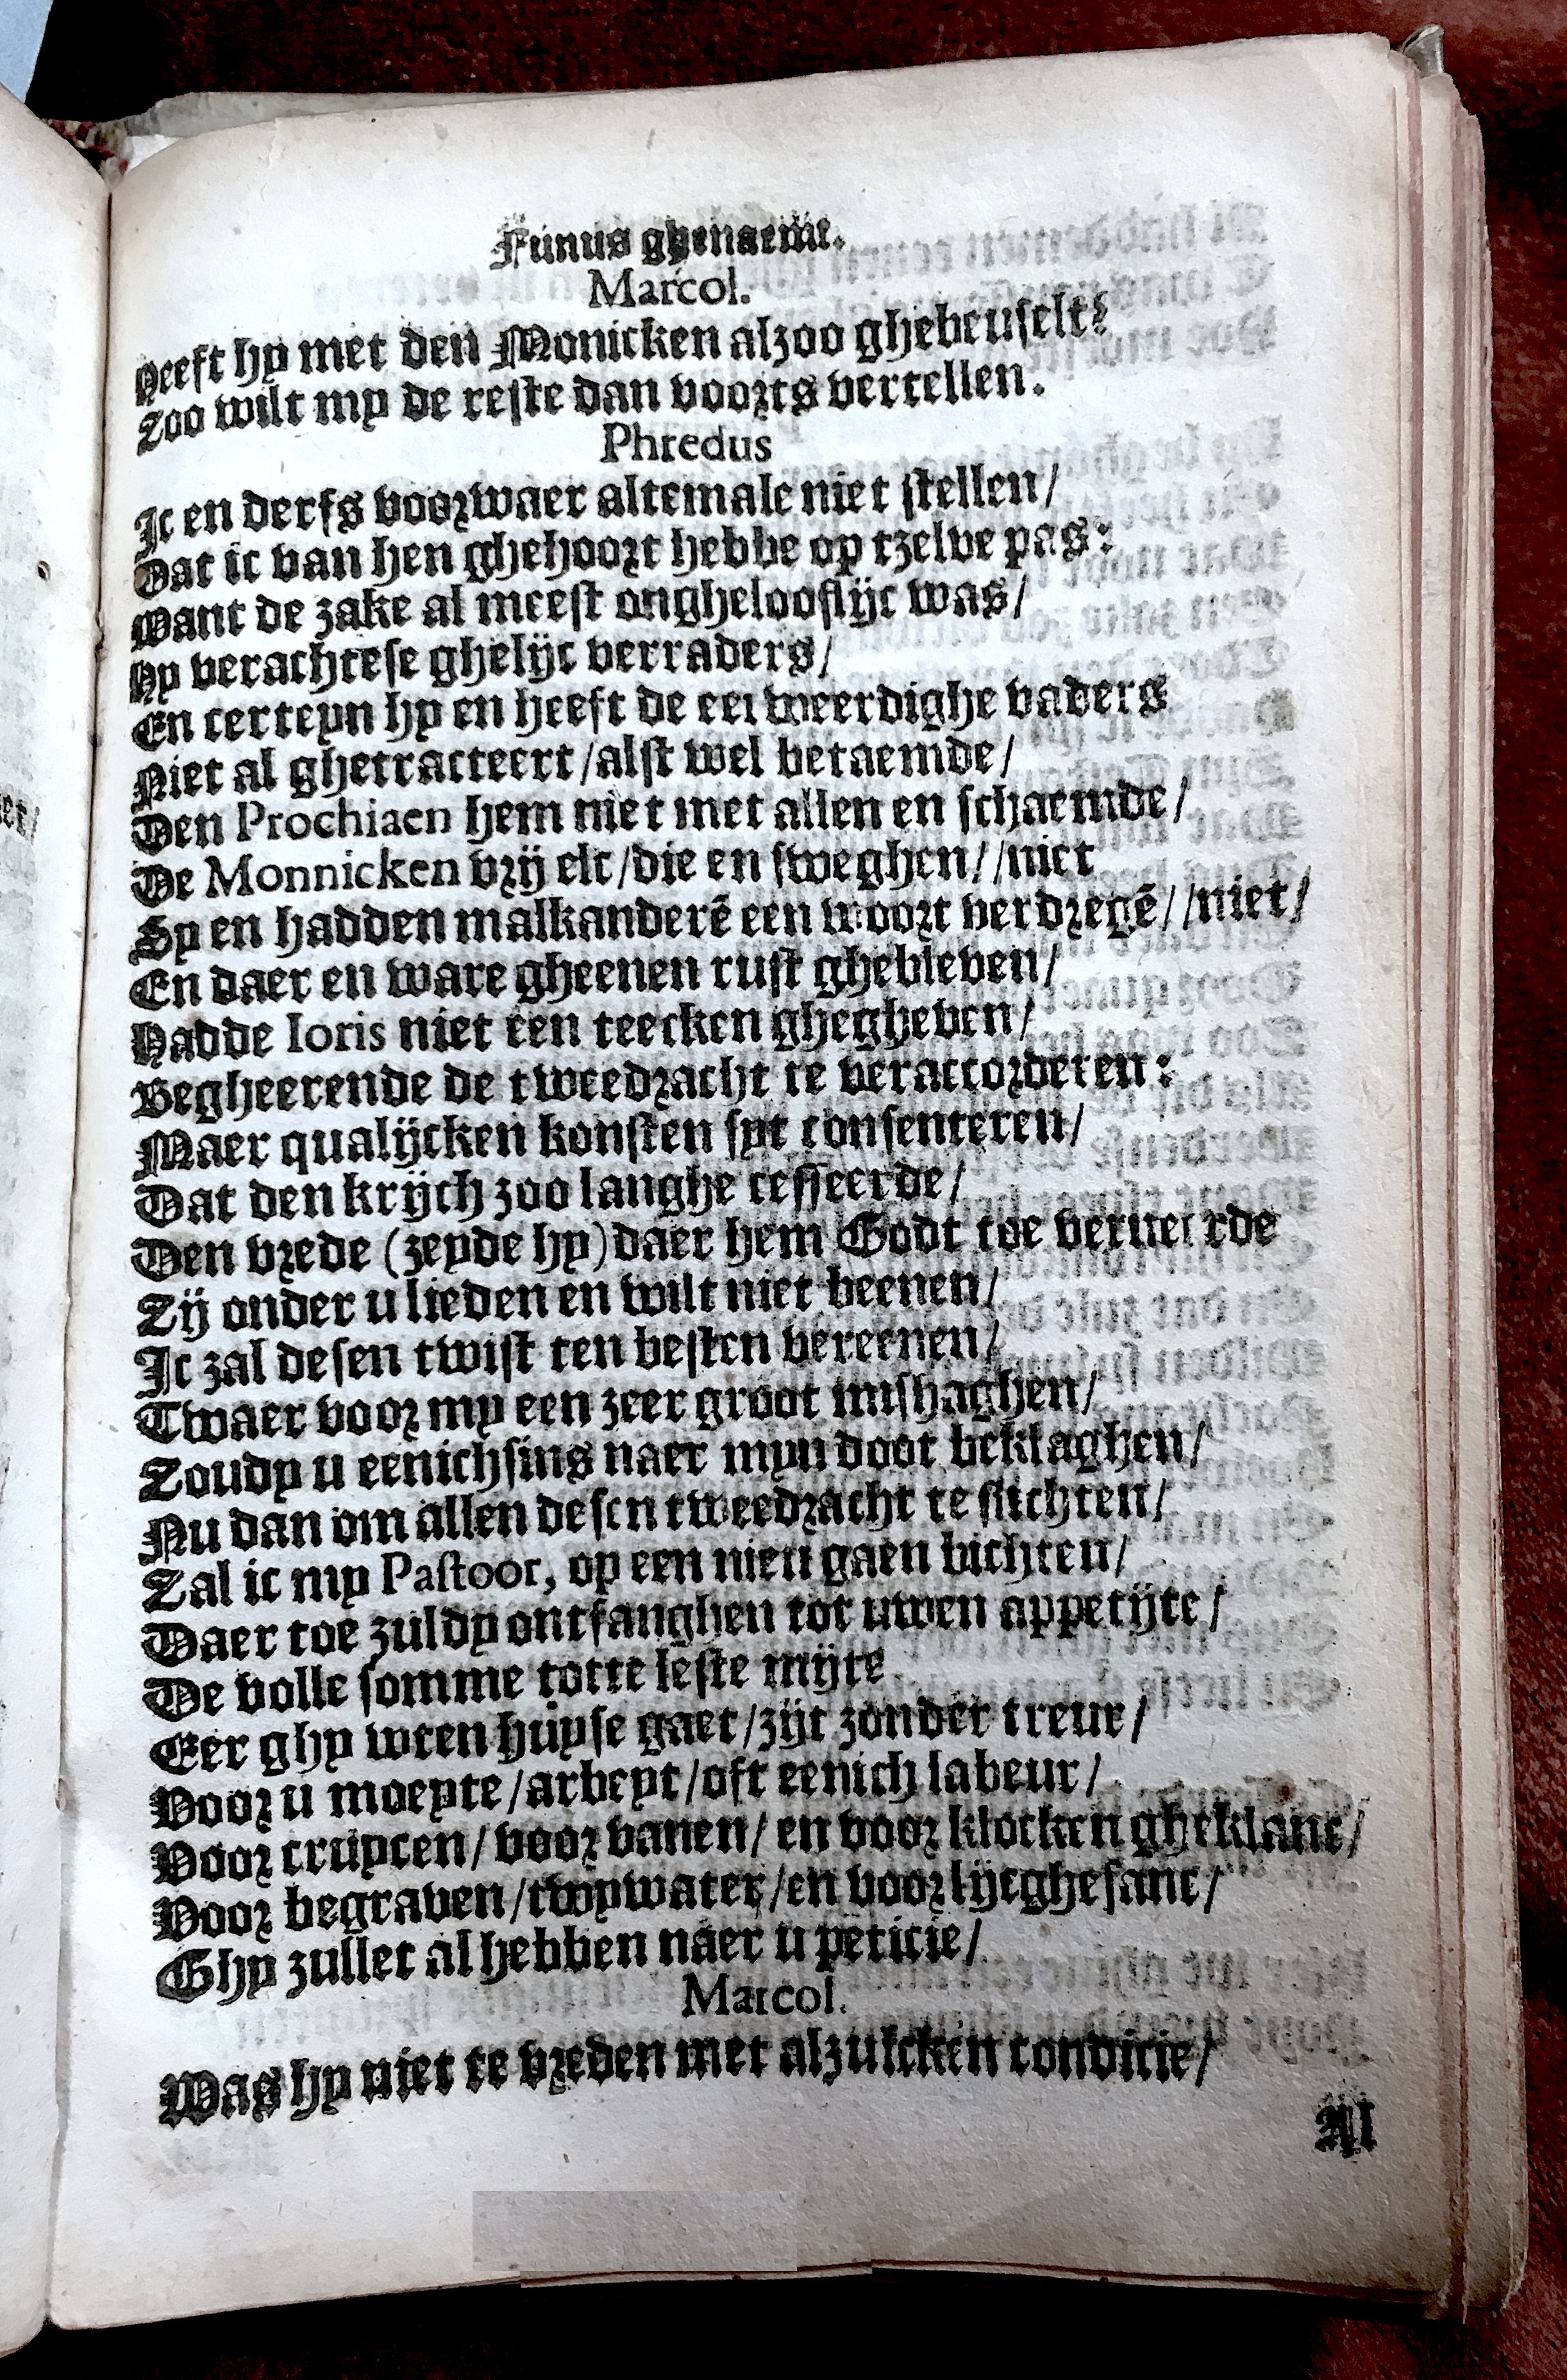 Funus ghenaemt.
Marcol.
Heeft hy met den Monicken alzoo ghebeuselt?
Zoo wilt my de reste dan voorts vertellen.
Phredus
Ic en derfs voorwaer altemale niet stellen/
Dat ic van hen ghehoort hebbe op tzelve pas:
Want de zake al meest onghelooflijc was/
Hy verachtese ghelijc verraders/
En certeyn hy en heeft de eerweerdighe vaders
Niet al ghetracteert/alst wel betaemde/
Den Prochiaen hem niet met allen en schaemde/
De Monnicken vrij elc/die en sweghen//niet
Sy en hadden malkanderē een woort verdregē//niet/
En daer en ware gheenen rust ghebleven/
Hadde Ioris niet een teecken ghegheven/
Begheerende de tweedracht te veraccorderen:
Maer qualijcken konsten syt consenteren/
Dat den krijch zoo langhe cesseerde/
Den vrede (zeyde hy) daer hem Godt toe verneerde
Zij onder u lieden en wilt niet beenen/
Ic zal desen twist ten besten vereenen/
Twaer voor my een zeer groot mishaghen/
Zoudy u eenichsins naer myn doot beklaghen/
Nu dan om allen desen tweedracht te slichten/
Zal ic my Pastoor, op een nieu gaen bichten/
Daer toe zuldy ontfanghen tot uwen appetijte/
De volle somme totte leste mijte
Eer ghy wten huyse gaet/zijt zonder treur/
Voor u moeyte/arbeyt/oft eenich labeur/
Voor cruycen/voor vanen/en voor klocken gheklanc/
Voor begraven/twywater/en voor lijcghesanc/
Ghy zullet al hebben naer u peticie/
Marcol.
Was hy niet te vreden met alzulcken conditie/
Al